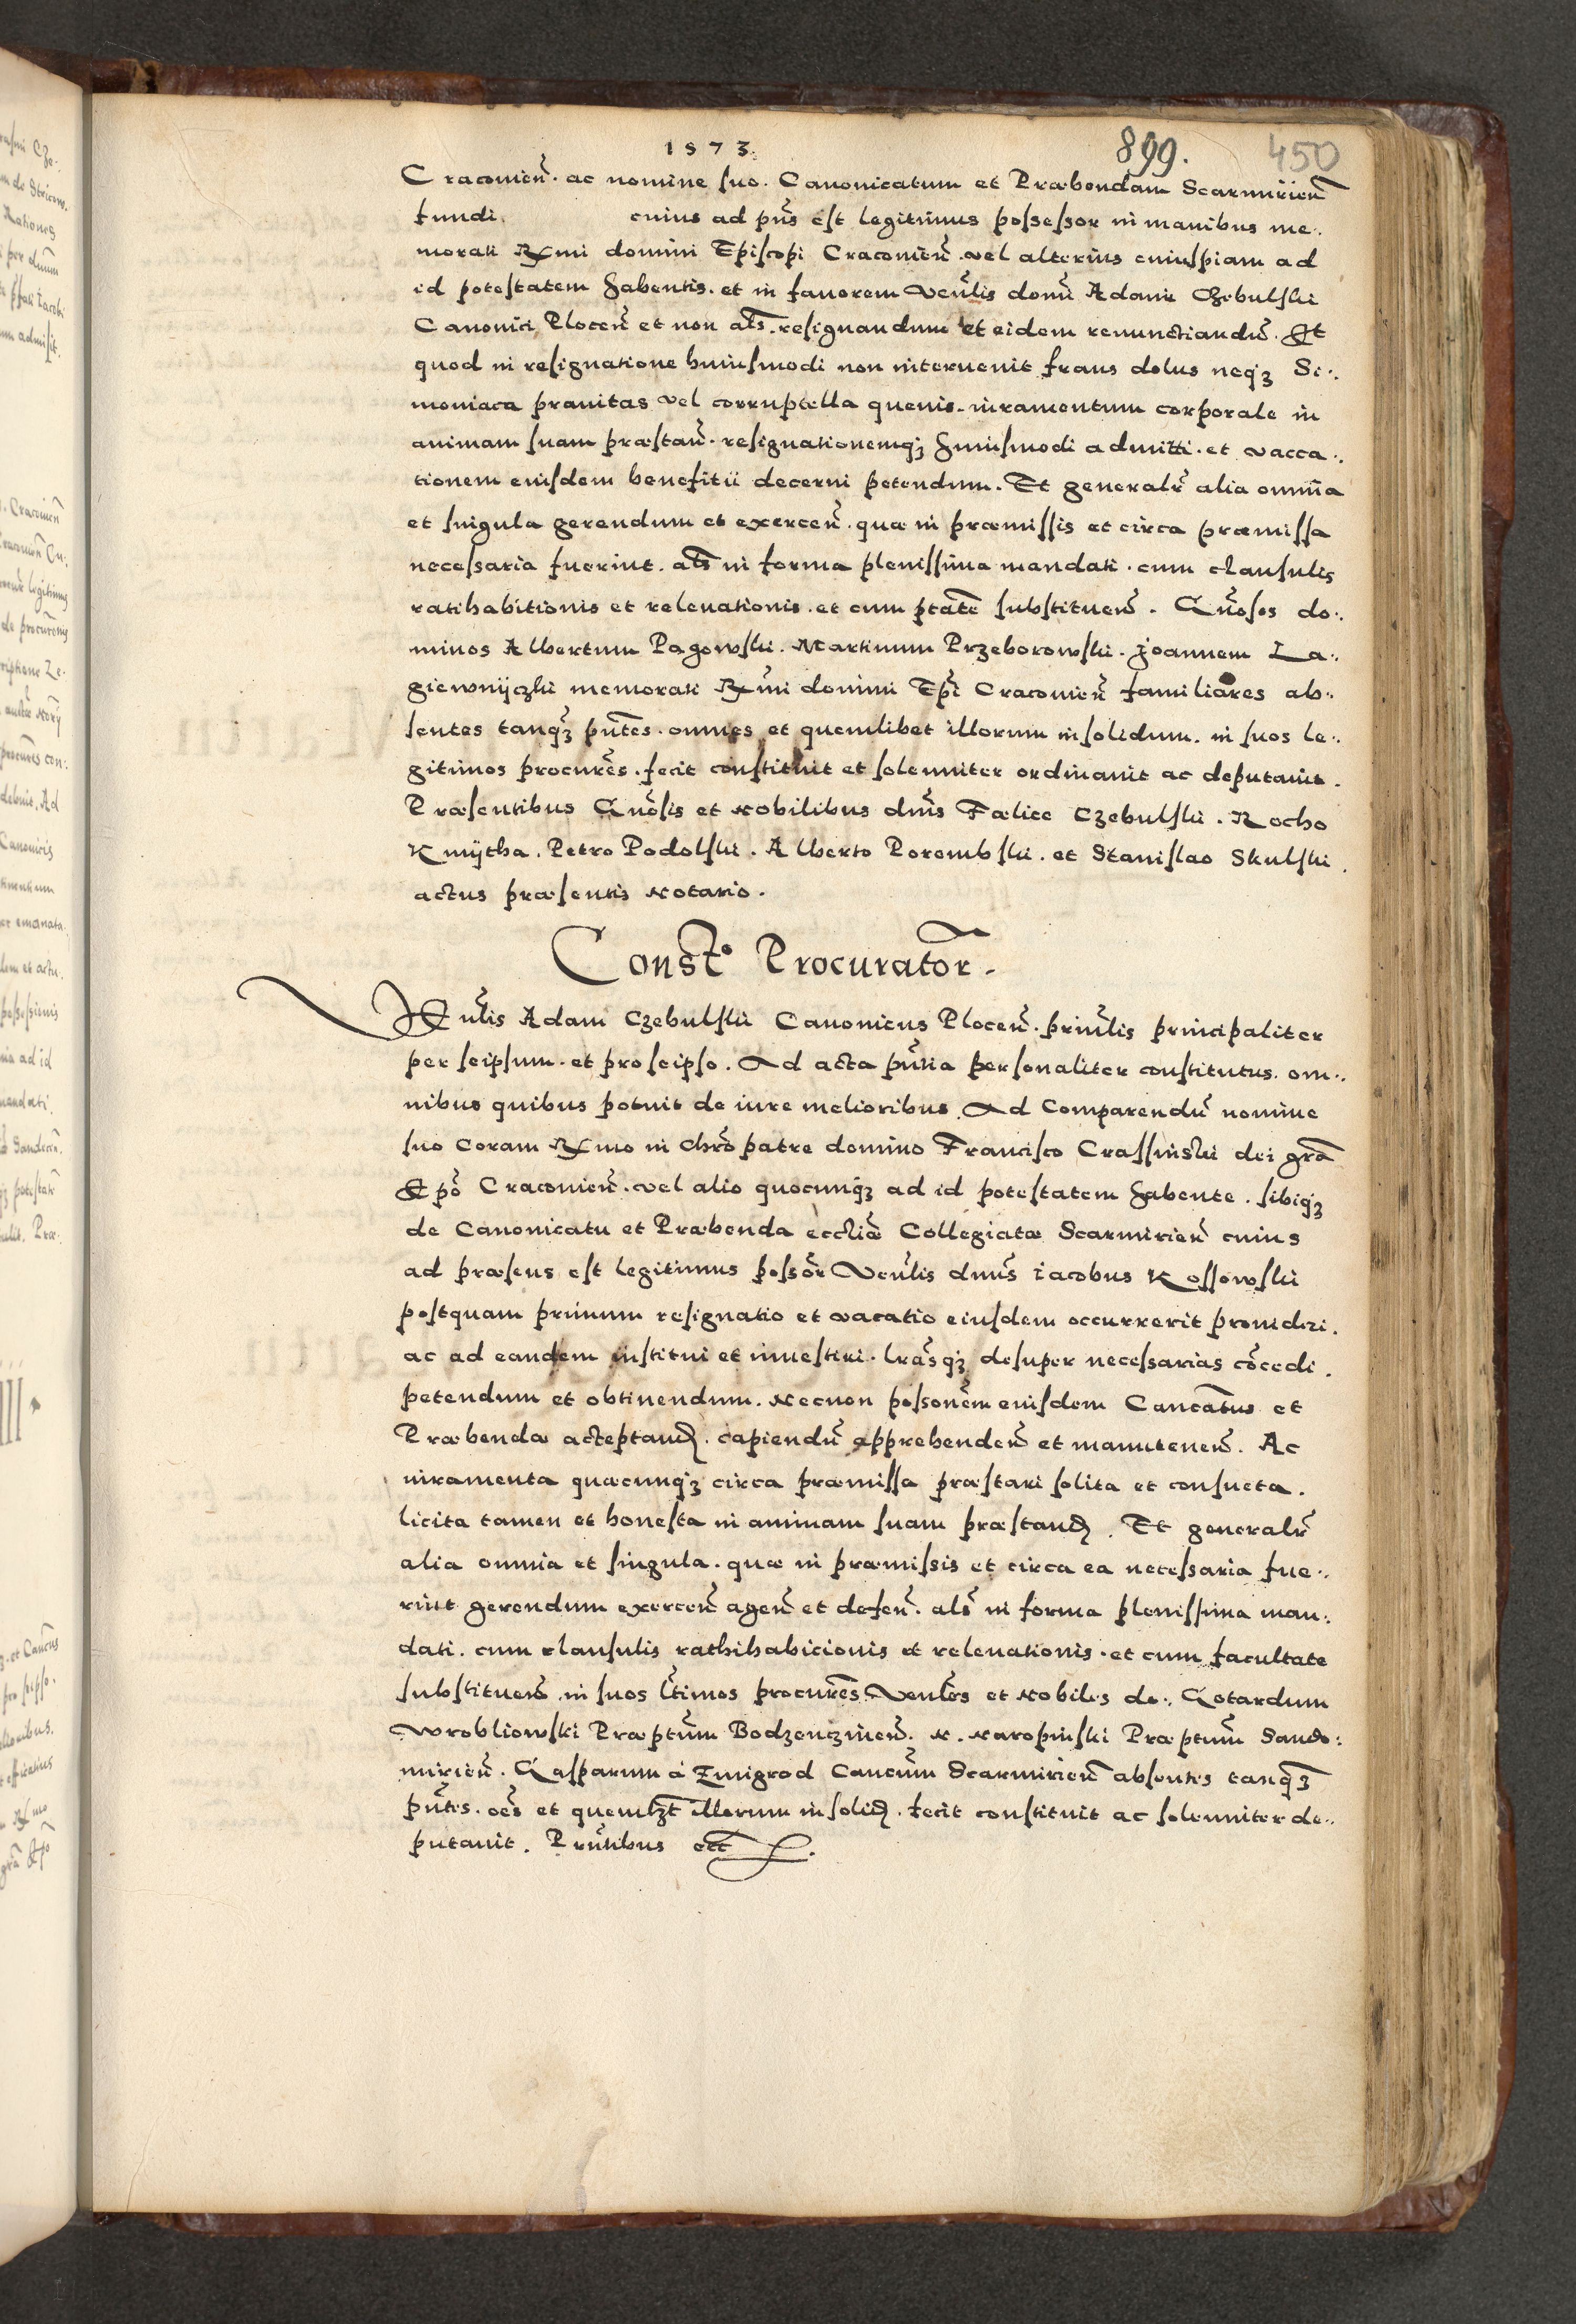 1573.
899.
450
Craconien̄. ac nomine suo. Canonicatum et Præbendam Scarmirien̄
fundi. cuius ad pn̄s est legitimus possessor in manibus me:.
morati Rx̄mi domini Episcopi Craconien̄. vel alterius cuiuspiam ad
id potestatem habentis. et in fauorem Ven̄lis domī Adami Czebulski
Canonici Plocen̄ et non al̄s. resignandum et eidem renunctiandū. Et
quod in resignatione huiusmodi non interuenit fraus dolus neqȝ Si:.
moniaca prauitas vel corruptella queuis. iuramentum corporale in
animam suam præstan̄. resignationemqȝ huiusmodi admitti. et vacca:.
tionem eiusdem benefitii decerni petendum. Et generalr̄ alia omnia
et singula gerendum et exercen̄. quæ in præmissis et circa præmissa
necessaria fuerint. al̄s in forma plenissima mandati. cum clausulis
ratihabitionis et releuationis. et cum ptāte substituen̄. Gn̄osos do:.
minos Albertum Pagowski. Martinum Przeborowski. Joannem La:.
giewnijczki memorati Rx̄mi domini Ep̄i Craconien̄ familiares ab:.
sentes tanqȝ pn̄tes. omnes et quemlibet illorum insolidum. in suos le:.
gitimos procurēs. fecit constituit et solenniter ordinauit ac deputauit.
Præsentibus Gn̄osis et Nobilibus dn̄is Fælice Czebulski. Rocho
Kmÿtha. Petro Podolski. Alberto Porembski. et Stanislao Skulski.
actus præsentis Notario.
Const.° Procurator̄.
Ven̄lis Adam Czebulski Canonicus Plocen̄. prin̄lis principaliter
per seipsum. et pro seipso. Ad acta pn̄tia personaliter constitutus. om:.
nibus quibus potuit de iure melioribus. Ad Comparendū nomine
suo Coram Rx̄mo in Chr̄o patre domino Francisco Crassinski dei gr̄a
Ep̄o Craconien̄. vel alio quocunqȝ ad id potestatem habente. sibiqȝ
de Canonicatu et Præbenda eccliæ Collegiatæ Scarmirien̄ cuius
ad præsens est legitimus possōr Ven̄lis dn̄us Iacobus Kossowski
postquam primum resignatio et vacatio eiusdem occurrerit prouideri.
ac ad eandem institui et inuestiri. lr̄asqȝ desuper necessarias cōcedi.
petendum et obtinendum. Necnon possonēm eiusdem Cancātus et
Præbendæ acceptand. capiendū apprehenden̄ et manutenen̄. Ac
iuramenta quæcunqȝ circa præmissa præstari solita et consueta.
licita tamen et honesta in animam suam præstand. Et generalr̄
alia omnia et singula. quæ in præmissis et circa ea necessaria fue:.
rint gerendum exercen̄ agen̄ et defen̄. al̄s in forma plenissima man:.
dati. cum clausulis rathihabicionis et releuationis. et cum facultate
substituen̄ in suos l̄timos procurēs Ven̄les et Nobiles do:. Gotardum
Wrobliowski Præptūm Bodzenczinen̄. N. Naropinski Præptūm Sando:.
mirien̄. Gasparum à Zmigrod Cancūm Scarmirien̄ absentes tanqȝ
pn̄tes. oēs et quemlȝt illorum insolid. fecit constituit ac solenniter de:.
putauit. Prn̄tibus etc̄.